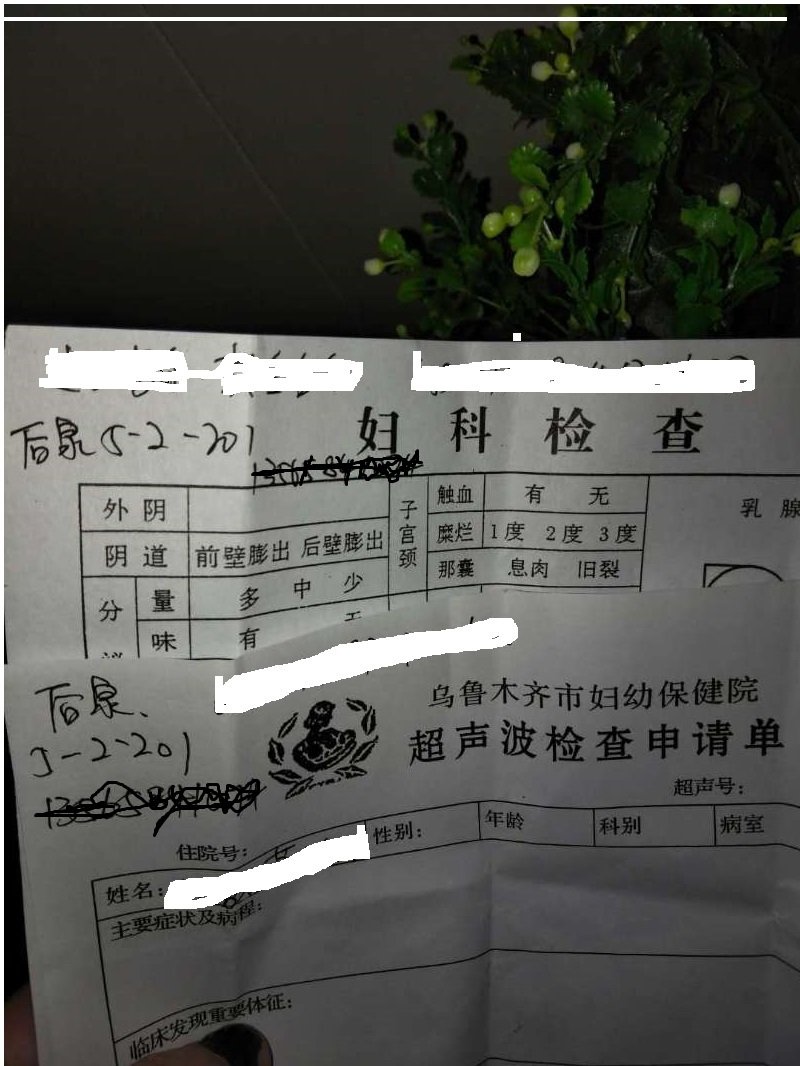 妇科检查
后泉 5-2-201
外阴
子宫颈
触血 有 无
阴道 前壁膨出 后壁膨出
糜烂 1度 2度 3度
那囊 息肉 旧裂
乳腺
分
量 多 中 少
味 有 无
乌鲁木齐市妇幼保健院
超声波检查申请单
后泉、
5-2-201
超声号:
住院号:
姓名:
性别:
年龄
科别
病室
主要症状及病程:
临床发现重要体征: